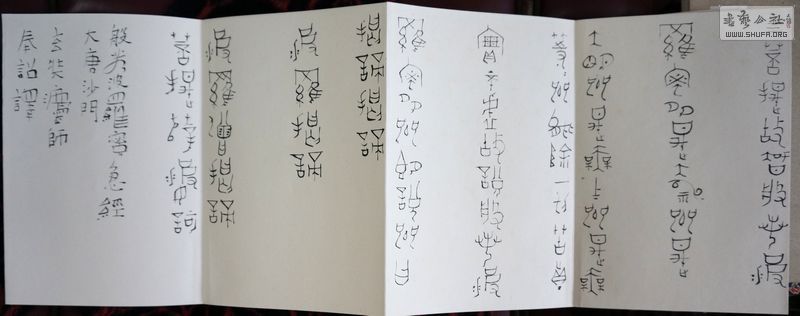 菩提故知般若波
羅蜜多是大神咒是
大明咒是無上咒是無
等等咒能除一切苦真
實不虛故說般若波
羅蜜多咒即說咒曰
揭諦揭諦
波羅揭諦
波羅僧揭諦
菩提薩婆訶
般若波羅蜜多心經
大唐沙門
玄奘灋師
奉詔譯
書法公社
WWW.SHUFA.ORG